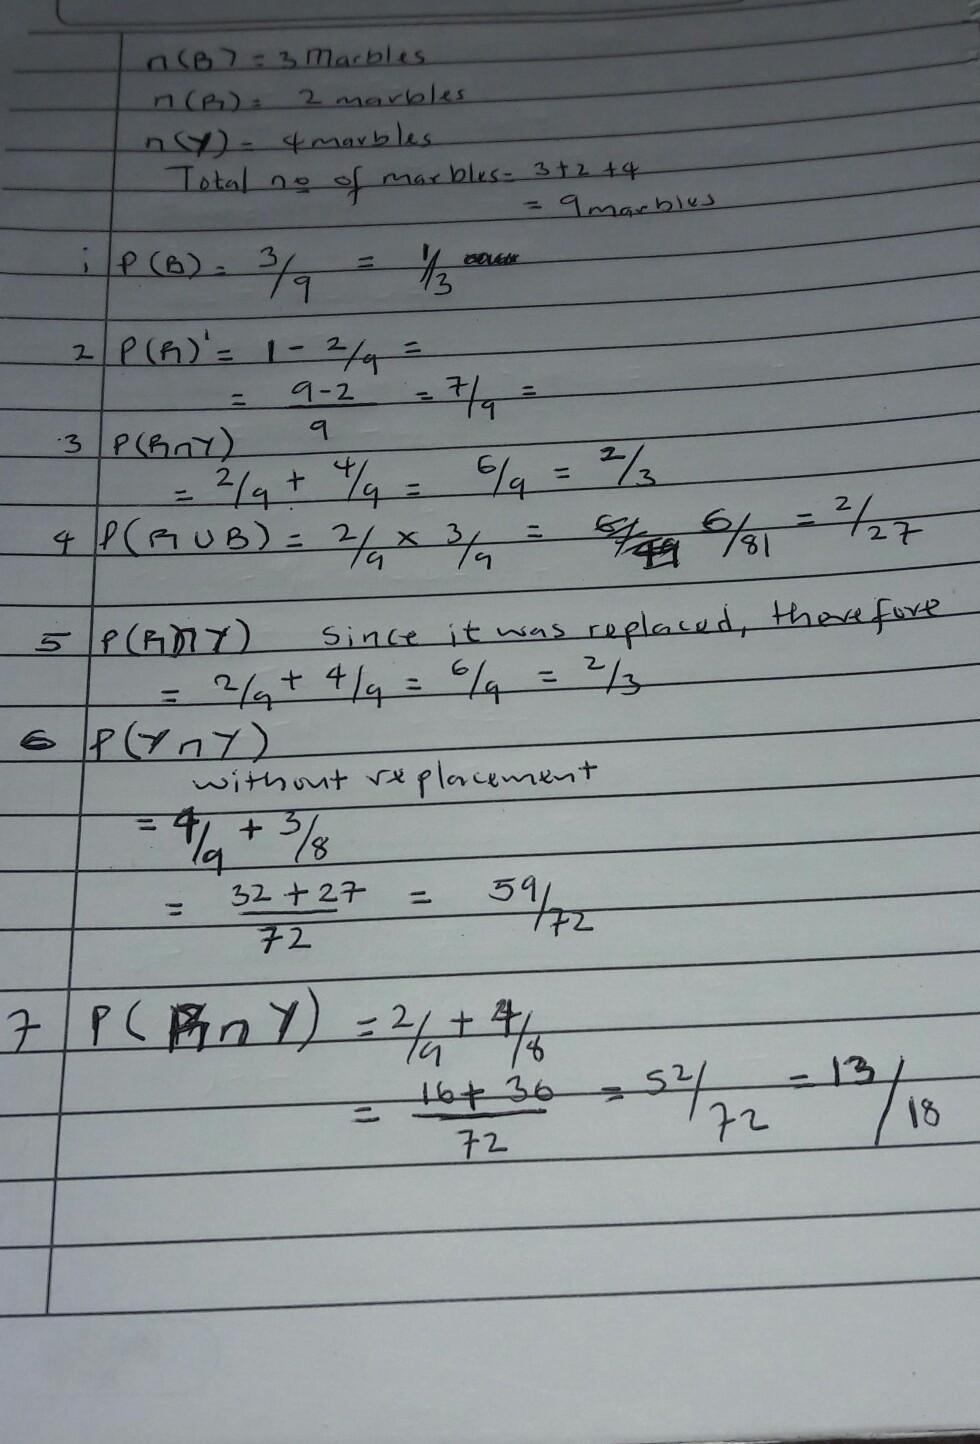 n(B) = 3 Marbles
n(R) = 2 marbles
n(Y) = 4 marbles
Total no of marbles = 3+2+4
= 9 marbles
i P(B) = 3/9 = 1/3
2 P(R)' = 1 - 2/9 =
= 9-2/9 = 7/9 =
3 P(R∩Y)
= 2/9 + 4/9 = 6/9 = 2/3
4 P(R∪B) = 2/9 × 3/9 = 6/81 = 2/27
5 P(R∩Y) since it was replaced, therefore
= 2/9 + 4/9 = 6/9 = 2/3
6 P(Y∩Y)
without replacement
= 4/9 + 3/8
= 32+27/72 = 59/72
7 P(R∩Y) = 2/9 + 4/8
= 16+36/72 = 52/72 = 13/18